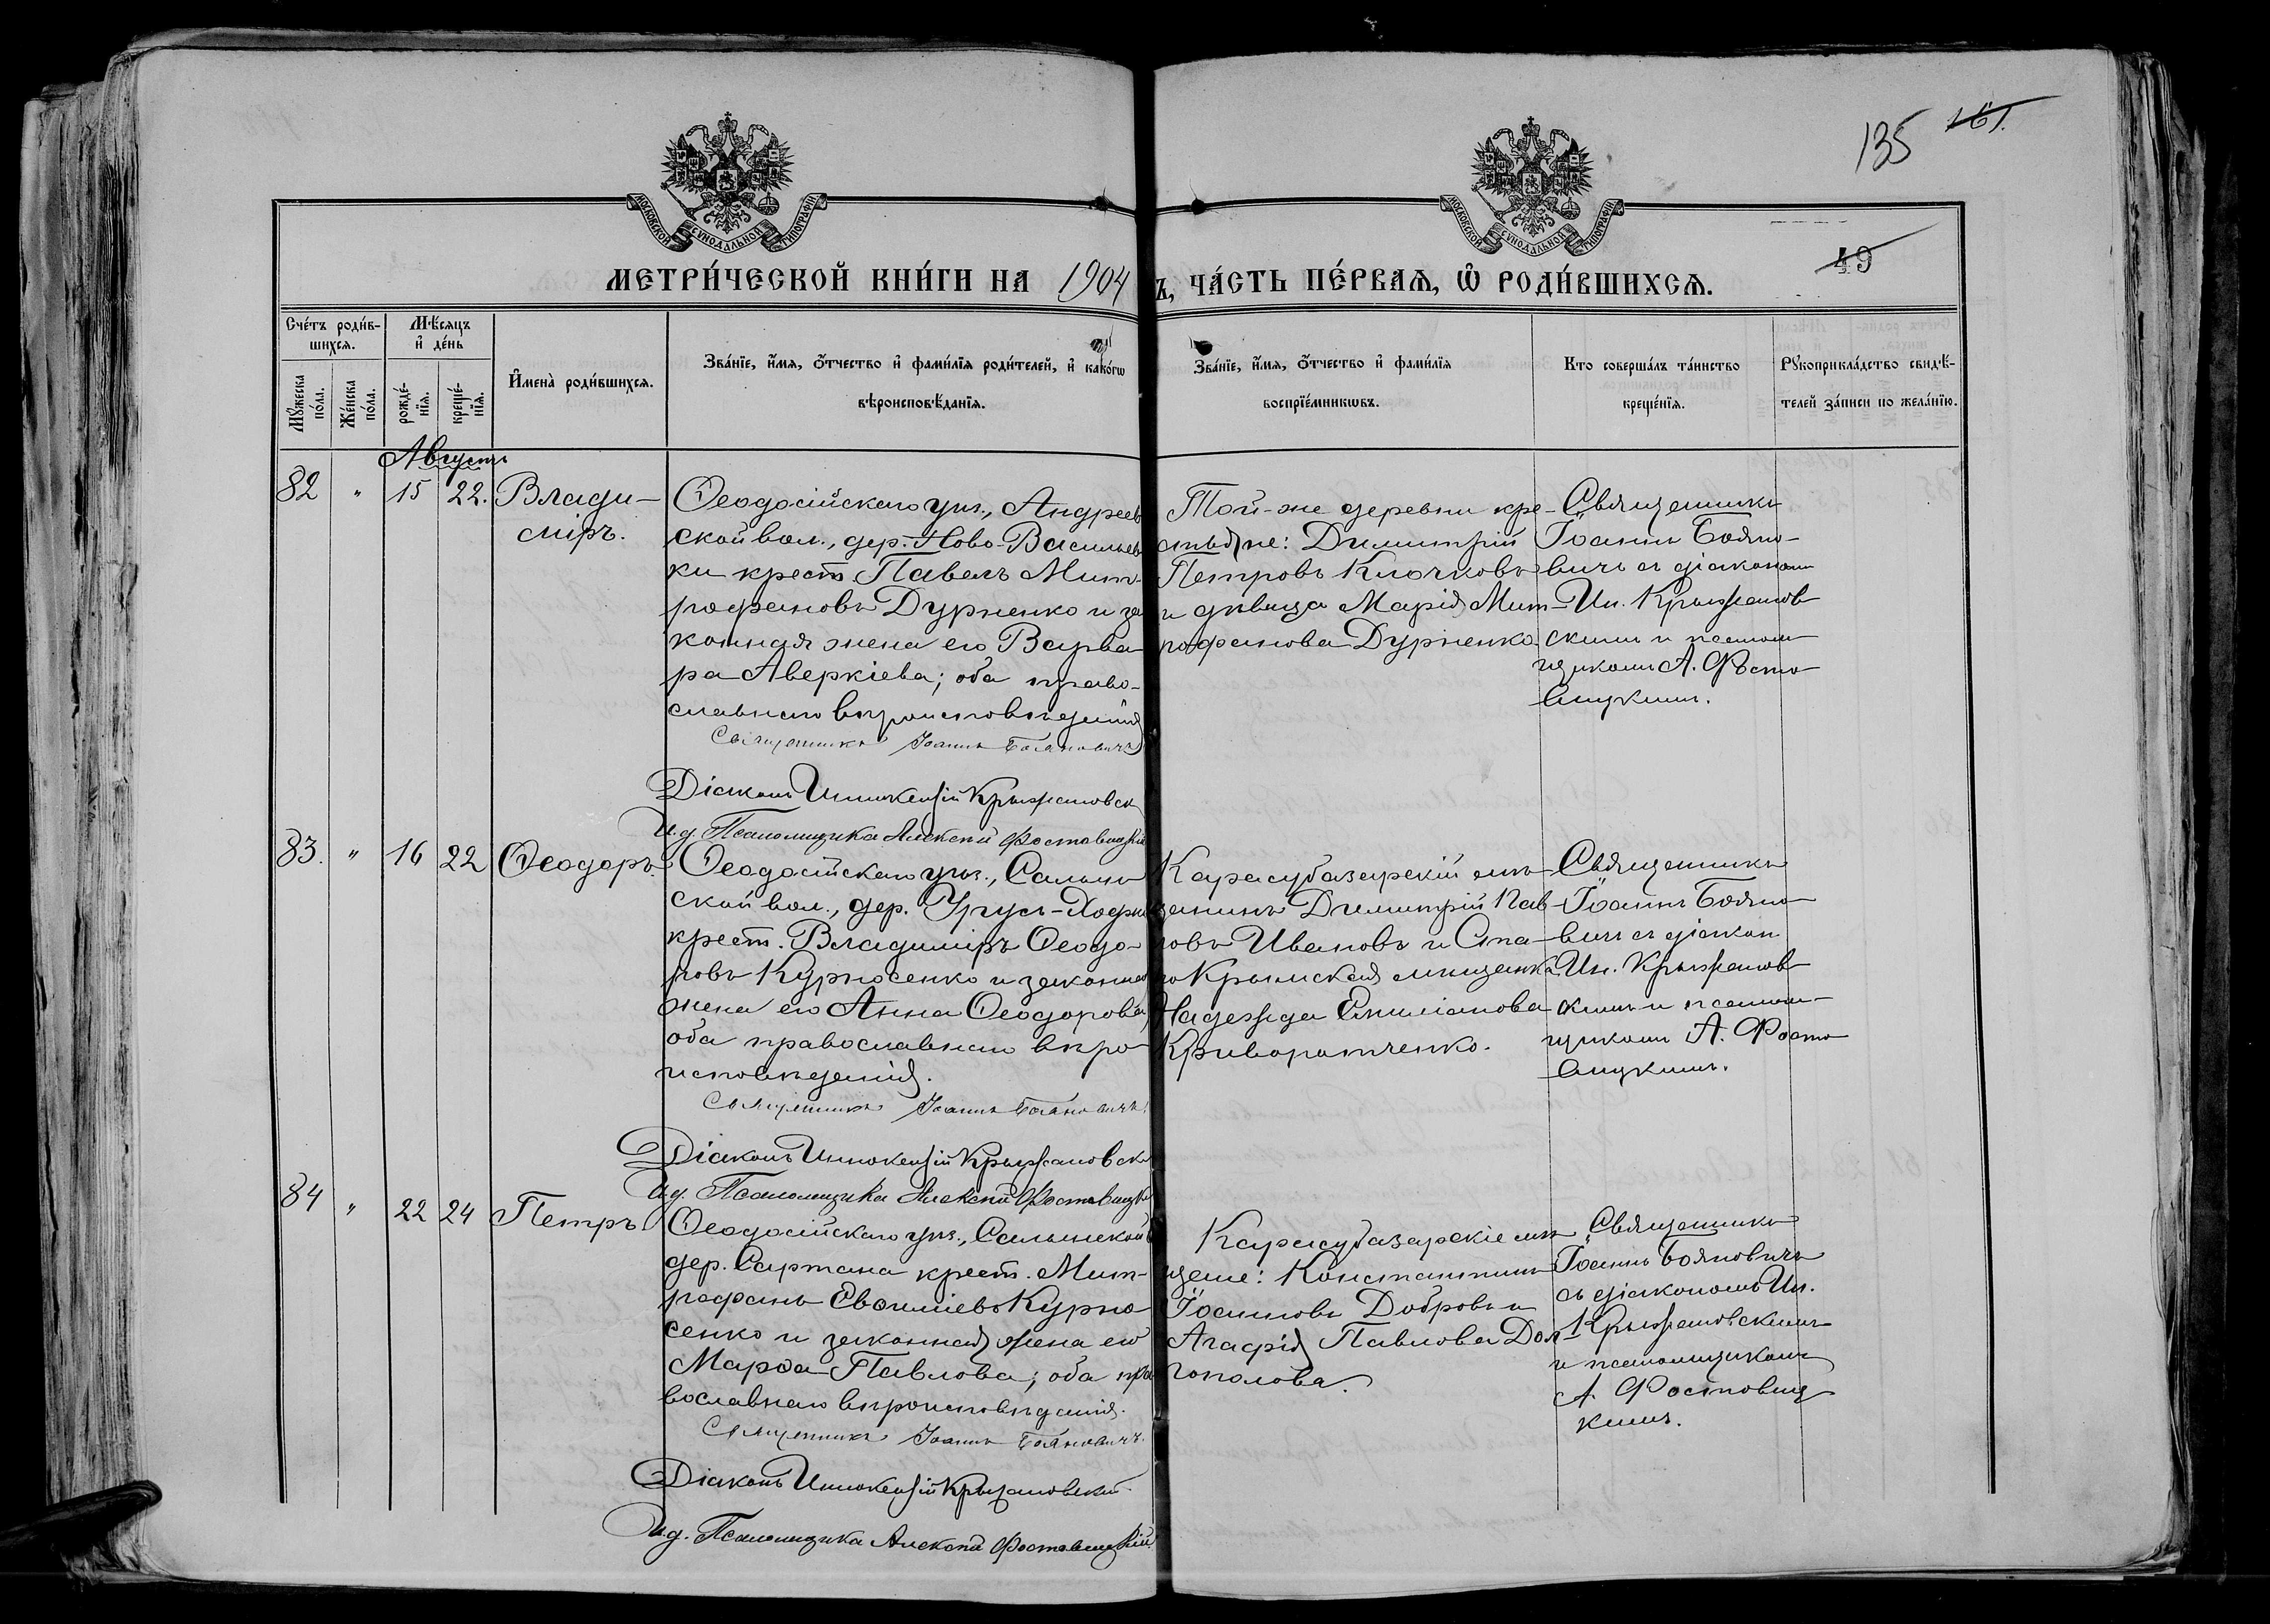 135 161.
МОСКОВСКОЙ СѴНОДАЛЬНОЙ ТИПОГРАФІИ
МОСКОВСКОЙ СѴНОДАЛЬНОЙ ТИПОГРАФІИ
49
МЕТРИ́ЧЕСКОЙ КНИ́ГИ НА 1904 Ъ, ЧА́СТЬ ПЕ́РВАѦ, Ѡ҆ РОДИ́ВШИХСѦ.
Сче́тъ роди́в-
шихсѧ.
Мѣ́сяцъ
и҆ де́нь
Мꙋ́жеска
по́ла.
Же́нска
по́ла.
рожде́-
нїѧ.
креще́-
нїѧ.
И҆мена̀ роди́вшихсѧ.
Зва́нїе, и҆́мѧ, ѻ҆́тчество и҆ фами́лїѧ роди́телей, и҆ како́гѡ
вѣроисповѣ́данїѧ.
Зва́нїе, и҆́мѧ, ѻ҆́тчество и҆ фами́лїѧ
воспрїе́мникѡвъ.
Кто соверша́лъ та́инство
креще́нїѧ.
Рꙋкоприкла́дство свидѣ́-
телей за́писи по жела́нїю.
Августъ
82 " 15 22. Влади-
міръ.
Ѳеодосійскаго уѣз., Андреев
ской вол., дер. Ново-Васильев
ки крест. Павелъ Мит-
рофановъ Дурненко и за
конная жена его Варва
ра Аверкіева; оба право-
славнаго вѣроисповѣданія
Священникъ Іоаннъ Бояновичъ
Діаконъ Иннокентій Крыжановск
И.д. Псаломщика Алексѣй Фостовицкій
Той-же деревни кре-
стьяне: Димитрій
Петровъ Клочковъ
и дѣвица Марія Мит-
рофанова Дурненко
Священникъ
Іоаннъ Бояно-
вичъ съ діакономъ
Ин. Крыжанов
скимъ и псалом
щикомъ А. Фосто
вицкимъ.
83. " 16 22 Ѳеодоръ.
Ѳеодосійскаго уѣз., Салын
ской вол., дер. Урусъ-Ходжи
крест. Владиміръ Ѳеодо-
ровъ Курносенко и законная
жена его Анна Ѳеодорова,
оба православнаго вѣро
исповѣданія.
Священникъ Іоаннъ Бояновичъ
Діаконъ Иннокентій Крыжановск
И.д. Псаломщика Алексѣй Фостовицкі
Карасубазарскій мѣ
щанинъ Димитрій Пав-
ловъ Ивановъ и Ста-
ро Крымская мѣщанка
Надежда Емиліанова
Криворотченко.
Священникъ
Іоаннъ Бояно
вичъ съ діакон
Ин. Крыжанов
скимъ и псалом-
щикомъ А. Фосто
вицкимъ.
84 " 22 24 Петръ
Ѳеодосійскаго уѣз., Салынской
дер. Сартана крест. Мит-
рофанъ Евѳиміевъ Курно
сенко и законная жена его
Марѳа Павлова; оба пра
вославнаго вѣроисповѣданія.
Священникъ Іоаннъ Бояновичъ.
Діаконъ Иннокентій Крыжановскій
И.д. Псаломщика Алексѣй Фостовицкій
Карасубазарскіе мѣ
щане: Константинъ
Іоанновъ Добровъ и
Агафія Павлова Дол
гополова.
Священникъ
Іоаннъ Бояновичъ
съ діакономъ Ин.
Крыжановскимъ
и псаломщикомъ
А. Фостовиц
кимъ.